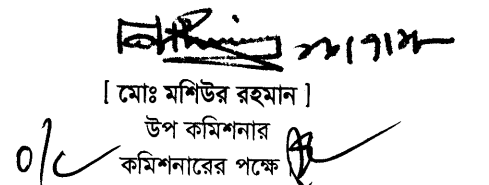 [ মোঃ মশিউর রহমান ]
উপ কমিশনার
o/c
কমিশনারের পক্ষে